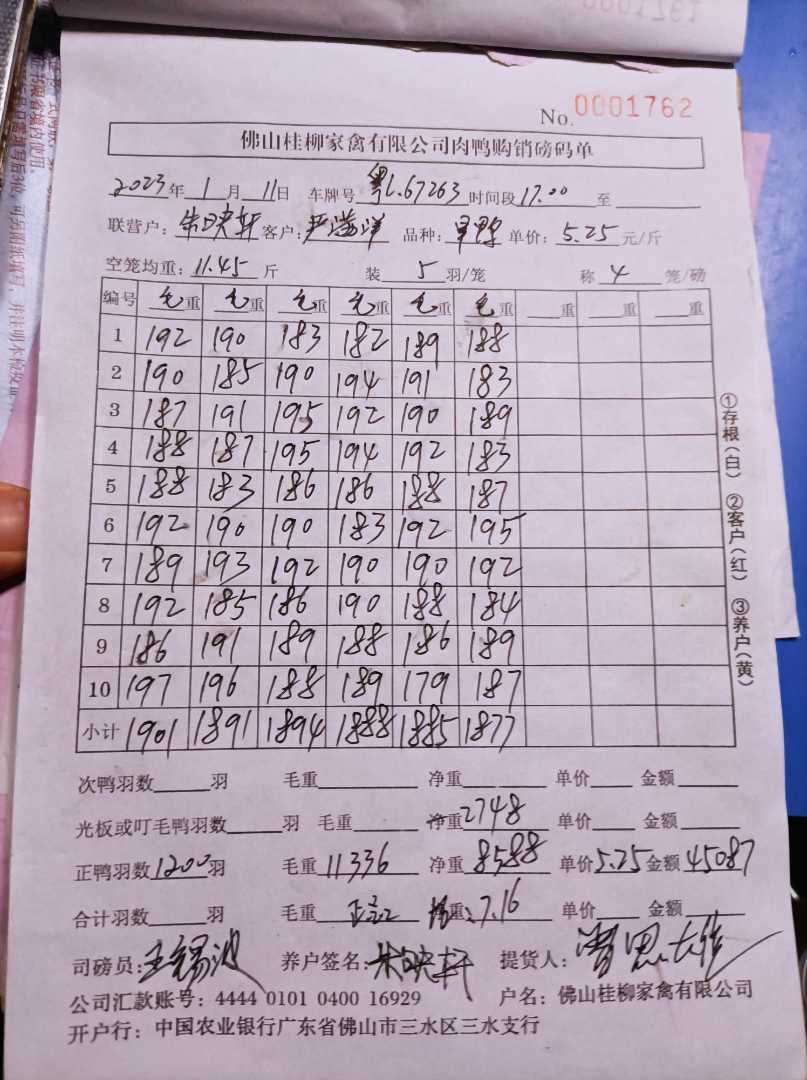 No. 0001762
佛山桂柳家禽有限公司肉鸭购销磅码单
2023年 1月 11日 车牌号 粤L.67263 时间段 17.00 至
联营户: 朱映轩 客户: 严满洋 品种: 旱鸭 单价: 5.25 元/斤
空笼均重: 11.45 斤 装 5 羽/笼 称 4 笼/磅
编号 毛重 毛重 毛重 毛重 毛重 毛重 重 重 重
1 192 190 183 182 189 188
2 190 185 190 194 191 183
3 187 191 195 192 190 189
4 188 187 195 194 192 183
5 188 183 186 186 188 187
6 192 190 190 183 192 195
7 189 193 192 190 190 192
8 192 185 186 190 188 184
9 186 191 189 188 186 189
10 197 196 188 189 179 187
小计 1901 1891 1894 1888 1885 1877
次鸭羽数 羽 毛重 净重 单价 金额
光板或叮毛鸭羽数 羽 毛重 净重 2748 单价 金额
正鸭羽数 1200 羽 毛重 11336 净重 8588 单价 5.25 金额 45087
合计羽数 羽 毛重 重 7.16 单价 金额
司磅员: 王锡波 养户签名: 朱映轩 提货人:
公司汇款账号: 4444 0101 0400 16929 户名: 佛山桂柳家禽有限公司
开户行: 中国农业银行广东省佛山市三水区三水支行
①存根(白) ②客户(红) ③养户(黄)